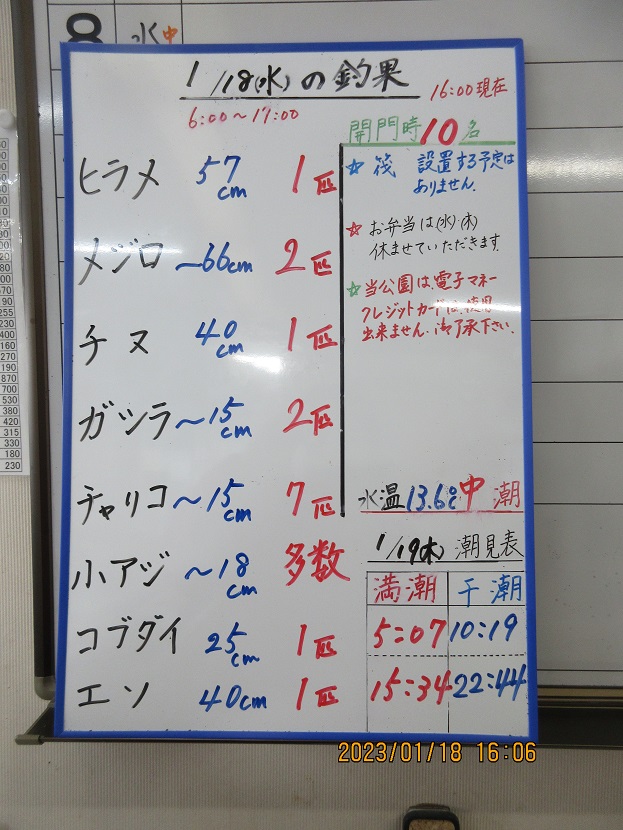 8 水中
1/18(水)の釣果
16:00現在
6:00～17:00
開門時10名
ヒラメ 57cm 1匹
メジロ ～66cm 2匹
チヌ 40cm 1匹
ガシラ ～15cm 2匹
チャリコ ～15cm 7匹
小アジ ～18cm 多数
コブダイ 25cm 1匹
エソ 40cm 1匹
☆ 筏 設置する予定は
ありません。
☆ お弁当は(水)・(木)
休ませていただきます。
☆ 当公園は、電子マネー
クレジットカードは、使用
出来ません。御了承下さい。
水温13.6℃ 中潮
1/19(木) 潮見表
満潮 干潮
5:07 10:19
15:34 22:44
2023/01/18 16:06